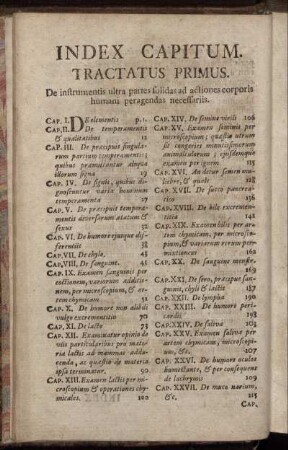 INDEX CAPITUM.
TRACTATUS PRIMUS.
De instrumentis ultra partes solidas ad actiones corporis
humani peragendas necessariis.
CAP. I. DE elementis p. 1.
CAP. II. De temperamentis
& qualitatibus 11
CAP. III. De præcipuis singula-
rum partium temperamentis;
quibus præmittuntur aliqua
illorum signa 19
CAP. IV. De signis, quibus di-
gnoscuntur varia hominum
temperamenta 27
CAP. V. De præcipuis tempera-
mentis diversorum ætatum &
sexus 32
CAP. VI. De humore ejusque dif-
ferentiis 38
CAP. VII. De chylo. 43
CAP. VIII. De sanguine. 48
CAP. IX. Examen sanguinis per
additio-
nem, per microscopium, & ar-
tem chymicam 51
CAP. X. De humore non alibili
vulgo excrementitio 70
CAP. XI. De lacte 73
CAP. XII. Examinatur opinio de
viis particularibus pro mate-
ria lactis ad mammas adde-
renda, ac quæstio de materia
ipsa terminatur. 90
CAP. XIII. Examen lactis per mi-
croscopium & operationes chy-
micales. 100
CAP. XIV. De semine virili 106
CAP. XV. Examen seminis per
microscopium; quæstio utrum
sit congeries minutissimorum
animalculorum; ejusdemque
examen per ignem 115
CAP. XVI. An detur semen mu-
liebre, & quale 128
CAP. XVII. De succo pancrea-
tico 136
CAP. XVIII. De bile excremen-
titia 141
CAP. XIX. Examen bilis per ar-
tem chymicam, per microsco-
pium, & variarum rerum per-
mixtionem 162
CAP. XX. De sanguine menstr.
169
CAP. XXI. De sero, præcipue san-
guinis, chyli & lactis 187
CAP. XXII. De lympha 190
CAP. XXIII. De humore peri-
cardii. 198
CAP. XXIV. De saliva 204
CAP. XXV. Examen salivæ per
artem chymicam, microscopi-
um, &c. 207
CAP. XXVI. De humore oculos
humectante, & per consequens
de lachrymis 209
CAP. XXVII. De muco narium,
&c. 215
CAP.